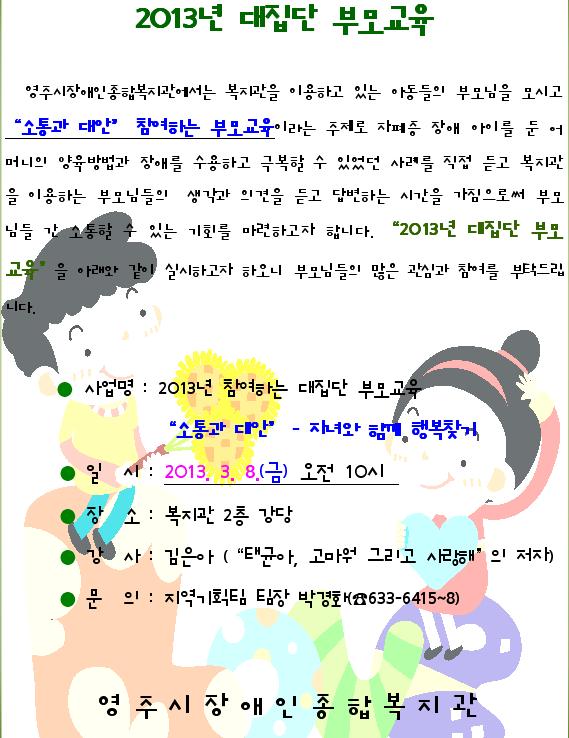 2013년 대집단 부모교육
영주시장애인종합복지관에서는 복지관을 이용하고 있는 아동들의 부모님을 모시고
“소통과 대안” 참여하는 부모교육이라는 주제로 자폐증 장애 아이를 둔 어
머니의 양육방법과 장애를 수용하고 극복할 수 있었던 사례를 직접 듣고 복지관
을 이용하는 부모님들의 생각과 의견을 듣고 답변하는 시간을 가짐으로써 부모
님들 간 소통할 수 있는 기회를 마련하고자 합니다. “2013년 대집단 부모
교육”을 아래와 같이 실시하고자 하오니 부모님들의 많은 관심과 참여를 부탁드립
니다.
● 사업명 : 2013년 참여하는 대집단 부모교육
“소통과 대안” - 자녀와 함께 행복찾기
● 일 시 : 2013. 3. 8.(금) 오전 10시
● 장 소 : 복지관 2층 강당
● 강 사 : 김은아 ( “태균아, 고마워 그리고 사랑해” 의 저자)
● 문 의 : 지역기획팀 팀장 박경화(☎633-6415~8)
영주시장애인종합복지관